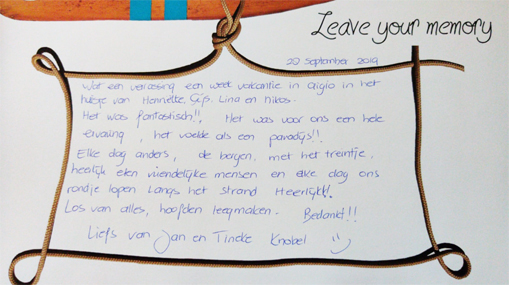 Leave your memory
22 September 2019
Wat een verrassing een week vakantie in Aigio in het
huisje van Henriëtte, Gijs, Lina en Nikos.
Het was fantastisch!!, Het was voor ons een hele
ervaring, het voelde als een paradijs!!
Elke dag anders, de bergen, met het treintje,
heerlijk eten vriendelijke mensen en elke dag ons
rondje lopen langs het strand Heerlijk!!
Los van alles, hoofden leegmaken. Bedankt!!
Liefs van Jan en Tineke Knobel